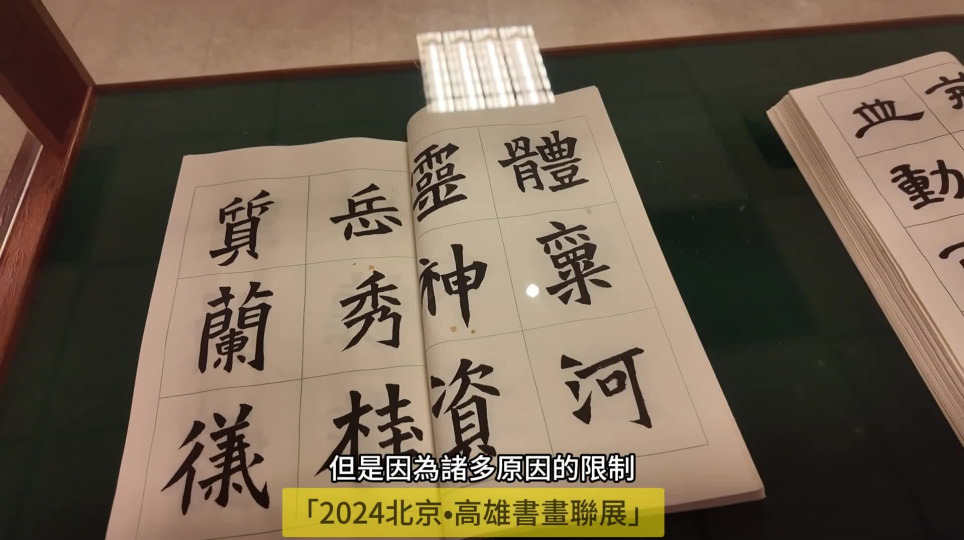 體稟河
靈神資
岳秀桂
質蘭儀
血動
但是因為諸多原因的限制
「2024北京•高雄書畫聯展」